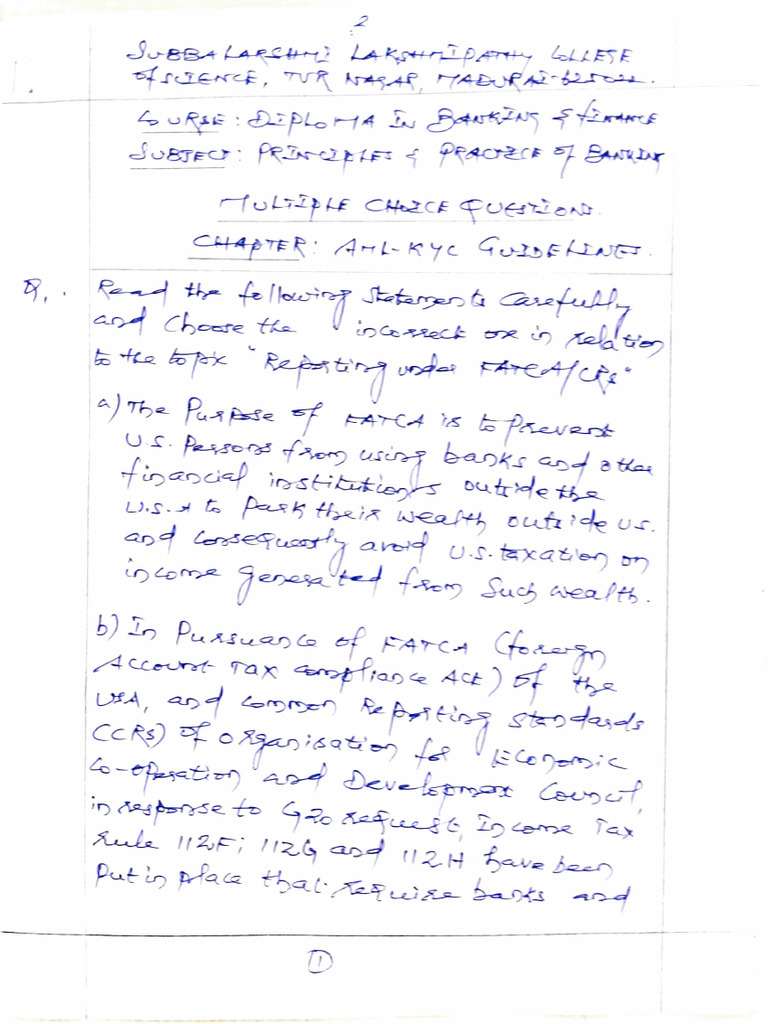 2
SUBBALAKSHMI LAKSHMIPATHY COLLEGE
of SCIENCE, TVR NAGAR, MADURAI-625022.
COURSE: DIPLOMA IN BANKING & FINANCE
SUBJECT: PRINCIPLES & PRACTICE of BANKING
MULTIPLE CHOICE QUESTIONS.
CHAPTER: AML-KYC GUIDELINES.
Q. Read the following statements carefully
and choose the incorrect one in relation
to the topic "Reporting under FATCA/CRS"
a) The Purpose of FATCA is to prevent
U.S. Persons from using banks and other
financial institutions outside the
U.S.A to Park their wealth outside U.S.
and consequently avoid U.S. taxation on
income generated from such wealth.
b) In Pursuance of FATCA (foreign
Account Tax compliance Act) of the
USA, and common Reporting standards
(CRS) of organisation for Economic
Co-operation and Development Council,
in response to G20 request, Income Tax
rule 112F; 112G and 112H have been
put in place that require banks and
1